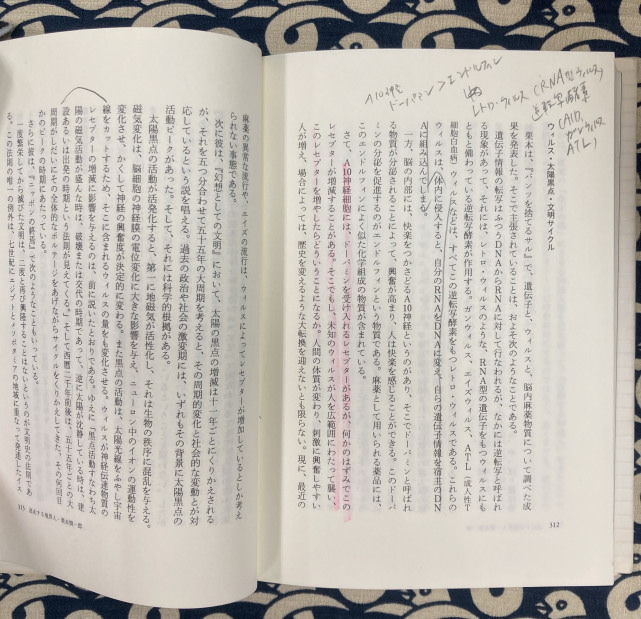 A10神経
ドーパミン>エンドルフィン
レトロ・ウィルス (RNA型ウィルス)
逆転写酵素
(AID,
ガンウィルス
ATL)
ウィルス・太陽黒点・文明サイクル
栗本は、『パンツを捨てるサル』で、遺伝子と、ウィルスと、脳内麻薬物質について調べた成
果を発表した。そこで主張されていることは、およそ次のようなことである。
遺伝子情報の転写はふつうDNAからRNAに対して行なわれるが、なかには逆転写と呼ばれ
る現象があって、それには、レトロ・ウィルスのような、RNA型の遺伝子をもつウィルスにも
ともと備わっている逆転写酵素が作用する。ガンウィルス、エイズウィルス、ATL(成人性T
細胞白血病)ウィルスなどは、すべてこの逆転写酵素をもつレトロ・ウィルスである。これらの
ウィルスは、体内に侵入すると、自分のRNAをDNAに変え、自らの遺伝子情報を宿主のDN
Aに組み込んでしまう。
一方、脳の内部には、快楽をつかさどるA10神経というのがあり、そこでドーパミンと呼ばれ
る物質が分泌されることによって、興奮が高まり、人は快楽を感じることができる。このドーパ
ミンの分泌を促進するのがエンドルフィンという物質である。麻薬として用いられる薬品には、
このエンドルフィンによく似た化学組成の物質が含まれている。
さて、A10神経細胞には、ドーパミンを受け入れるレセプターがあるが、何かのはずみでこの
レセプターが増減することがある。そこでもし、未知のウィルスが人を広範囲にわたって襲い、
このレセプターを増やしたらどういうことになるか。人間の体質が変わり、刺激に興奮しやすい
人が増え、場合によっては、歴史を変えるような大転換を迎えないとも限らない。現に、最近の
312
麻薬の異常な流行や、エイズの流行は、ウィルスによってレセプターが増加しているとしか考え
られない事態である。
次に彼は、『幻想としての文明』において、太陽の黒点の増減は十一年ごとにくりかえされる
が、それを五つ分合わせて五十五年の大周期を考えると、その周期的変化と社会的な変動とが対
応しているという説を唱える。過去の政治や社会の激変期には、いずれもその背景に太陽黒点の
活動ピークがあった。そして、それには科学的根拠がある。
太陽黒点の活動が活発化すると、第一に地磁気が活性化し、それは生物の秩序に混乱を与える。
磁気変化は、脳細胞の神経膜の電位変化に大きな影響を与え、ニューロン中のイオンの運動性を
変化させ、かくして神経の興奮度が決定的に変わる。また黒点の活動は、太陽光線をふやし宇宙
線をカットするため、そこに含まれるウィルスの量をも変化させる。ウィルスが神経伝達物質の
レセプターの増減に影響を与えるのは、前に説いたとおりである。ゆえに「黒点活動すなわち太
陽の磁気活動が盛んな時は、破壊または交代の時期であって、逆に太陽が沈静している時は、建
設あるいは出発の時期という法則が見えてくる。」そして西暦二千年前後は、五十五年ごとの大
かのピークの時期にあたっている。
さらに彼は、『ニッポンの終焉』で次のようなこともいっている。
二度繁栄してから滅びた文明は、二度と再び興隆することはないというのが文明史の法則であ
る。この法則の唯一の例外は、七世紀にエジプトとメソポタミアの地域に重なって発達したイス